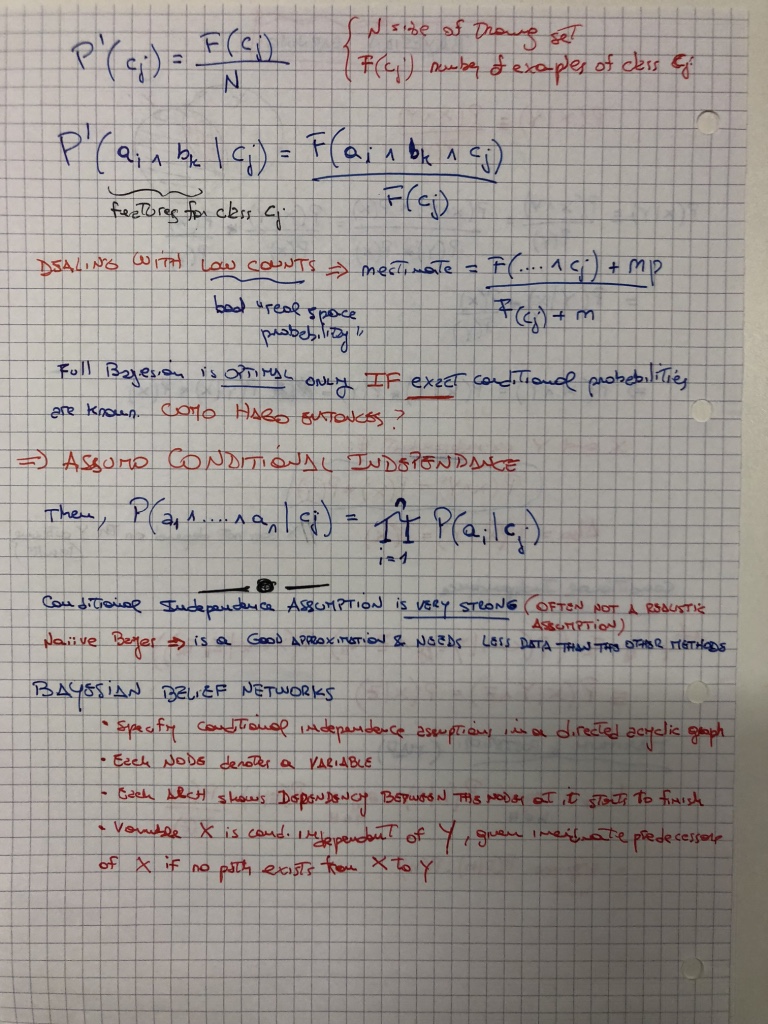 P'(cj) = F(cj) / N { N size of Traing set
F(cj) number of examples of class cj
P'(ai ∧ bk | cj) = F(ai ∧ bk ∧ cj) / F(cj)
features for class cj
DEALING WITH LOW COUNTS ⇒ mestimate = F(.... ∧ cj) + mp / F(cj) + m
bad "real space
probability"
Full Bayesian is OPTIMAL ONLY IF exact conditional probabilities
are known. COMO HAGO ENTONCES?
⇒ ASSUMO CONDITIONAL INDEPENDANCE
Then, P(a1 ∧ .... ∧ an | cj) = ∏ i=1 n P(ai | cj)
Conditional Independence ASSUMPTION is VERY STRONG (OFTEN NOT A REALISTIC
ASSUMPTION)
Naiive Bayes ⇒ is a GOOD APPROXIMATION & NEEDS LESS DATA THAN THE OTHER METHODS
BAYESIAN BELIEF NETWORKS
• Specify conditional independence asumptions in a directed acyclic graph
• Each NODE denotes a VARIABLE
• Each ARCH shows DEPENDENCY BETWEEN THE NODES at it starts to finish
• Variable X is cond. independent of Y, given predecessors
of X if no path exists from X to Y